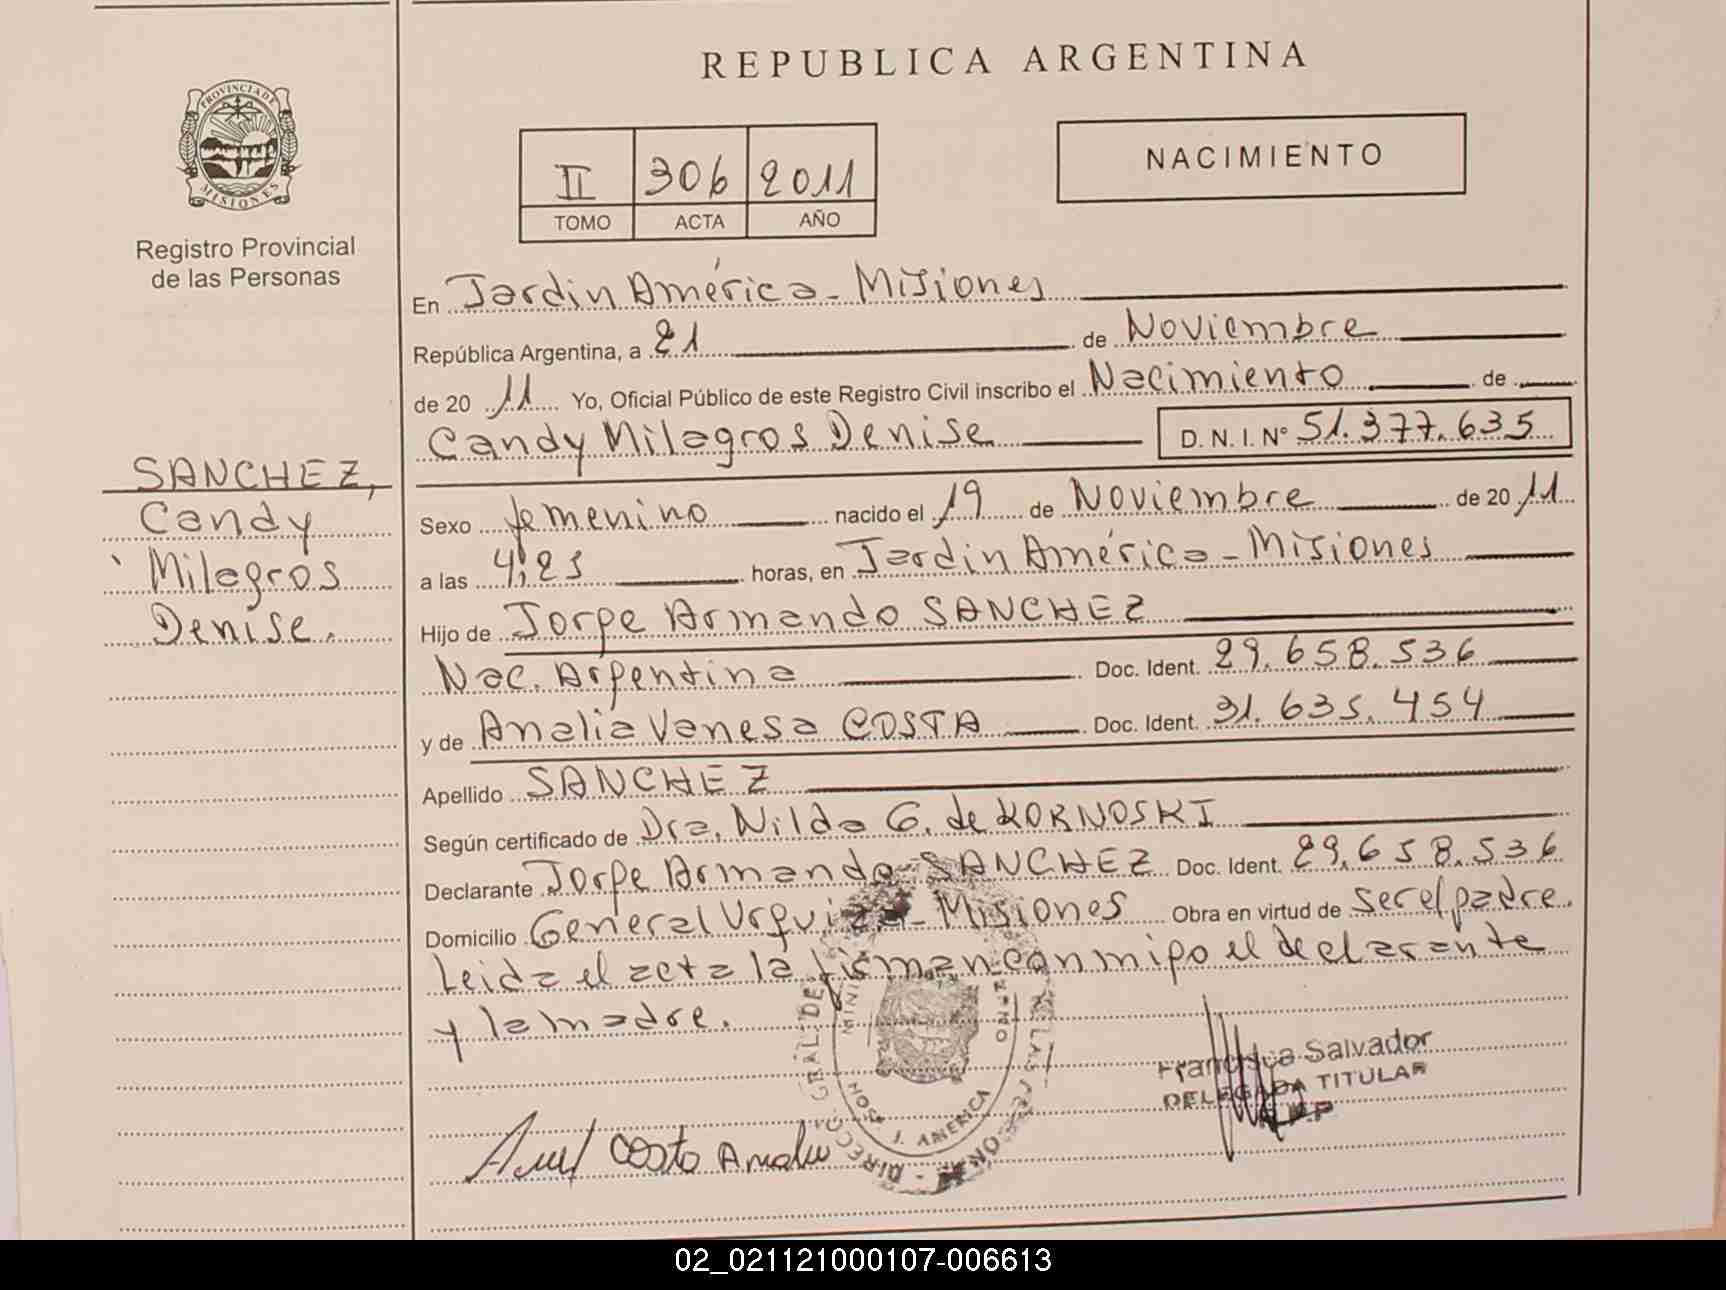 REPUBLICA ARGENTINA
PROVINCIA DE
MISIONES
Registro Provincial
de las Personas
II 306 2011
TOMO ACTA AÑO
NACIMIENTO
En Jardin América - Misiones
República Argentina, a 21 de Noviembre
de 20 11 Yo, Oficial Público de este Registro Civil inscribo el Nacimiento de
Candy Milagros Denise D. N. I. Nº 51.377.635
SANCHEZ,
Candy
Milagros
Denise.
Sexo femenino nacido el 19 de Noviembre de 20 11
a las 4,25 horas, en Jardin América - Misiones
Hijo de Jorge Armando SANCHEZ
Nac. Argentina Doc. Ident. 29.658.536
y de Analia Vanesa COSTA Doc. Ident. 31.635.454
Apellido SANCHEZ
Según certificado de Dra. Nilda G. de KORNOSKI
Declarante Jorge Armando SANCHEZ Doc. Ident. 29.658.536
Domicilio General Urquiza - Misiones Obra en virtud de ser el padre.
Leida el acta la firman conmigo el declarante
y la madre.
Francisca Salvador
DELEGADA TITULAR
Costa Analia
J. AMERICA
02_021121000107-006613